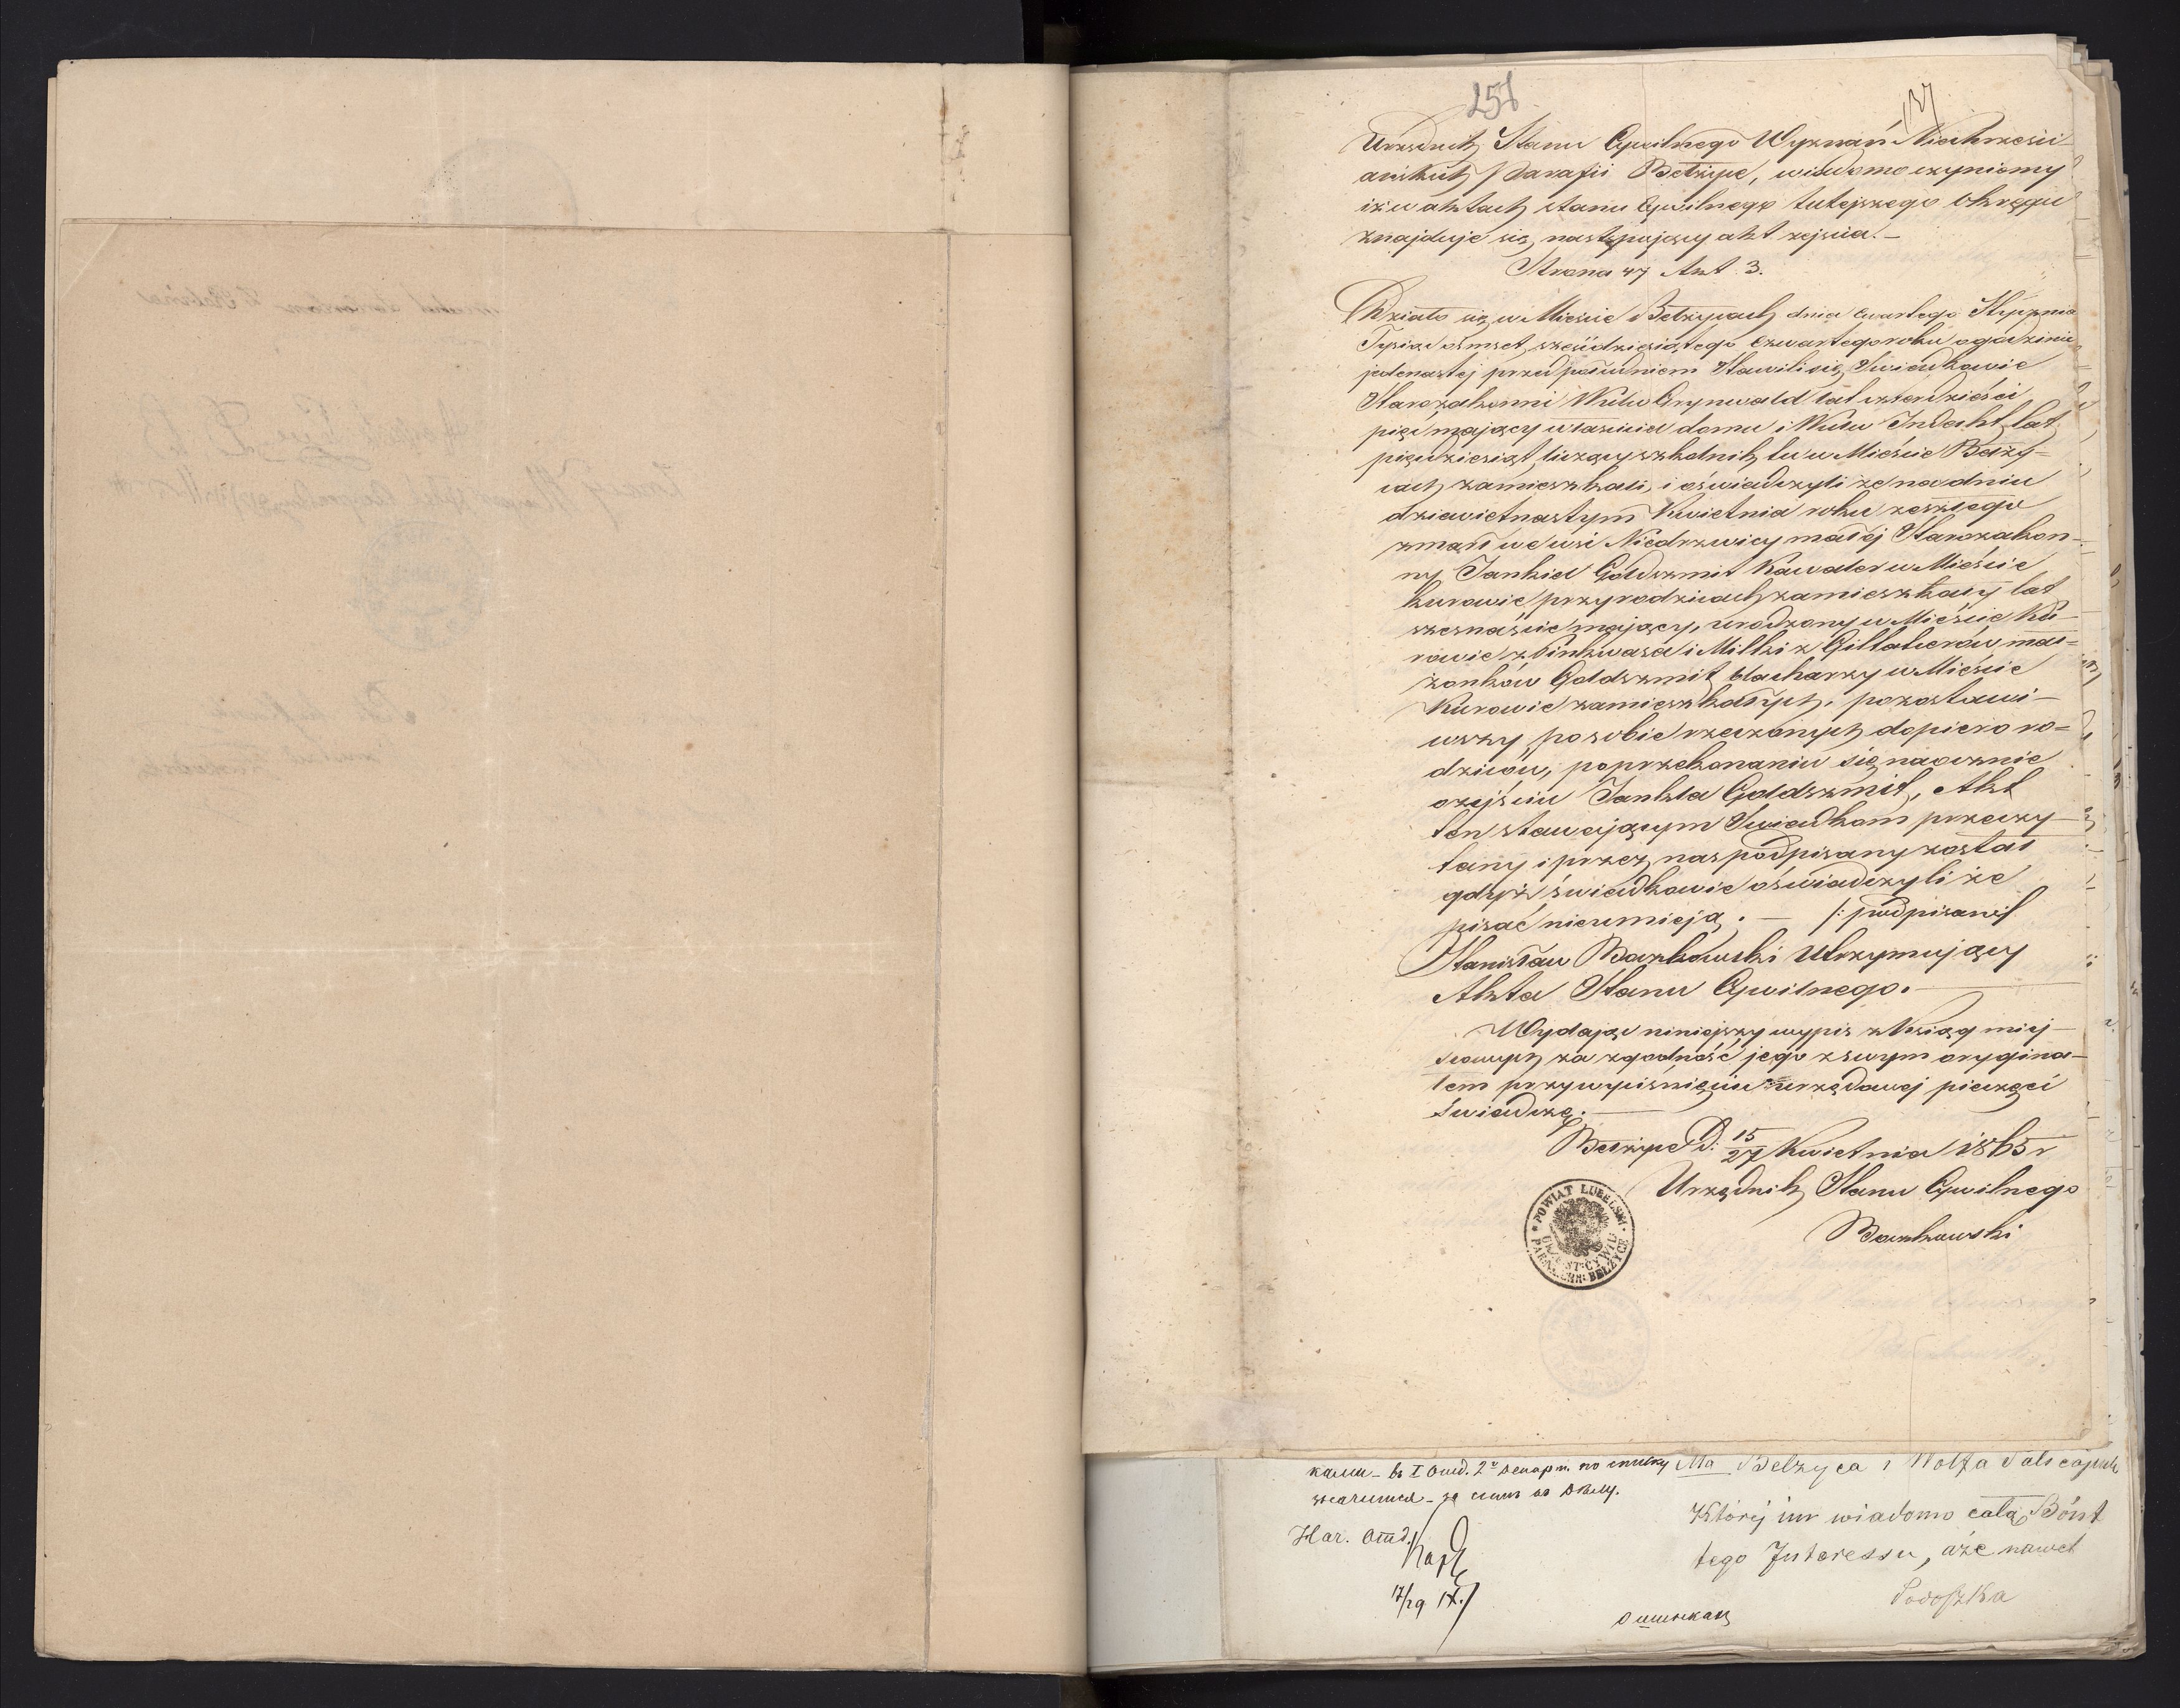 251
137
Urzędnik Stanu Cywilnego Wyznań Niechrześci-
ańskich Parafii Bełżyce, wiadomo czyniemy
iż w aktach stanu Cywilnego tutejszego Okręgu
znajduje się następujący akt zejścia.—
Strona 47 Akt 3.
Działo się w Mieście Bełżycach dnia czwartego Stycznia
Tysiąc ośmset sześćdziesiątego czwartego roku o godzinie
jedenastej przed południem Stawili się Świadkowie
Starozakonni Wulw Grynwald lat czterdzieści
pięć mający właściciel domu i Wulw lat
pięćdziesiąt liczący szkolnik tu w Mieście Bełży-
cach zamieszkali, i oświadczyli że na dniu
dziewiętnastym Kwietnia roku zeszłego
zmarł we wsi Niedrzwicy małej Starozakon-
ny Jankiel Goldszmit Kawaler w Mieście
Kurowie przy rodzicach zamieszkały lat
szesnaście mający, urodzony w Mieście Ku-
rowie z i Milki z mał-
żonków Goldszmit blacharzy w Mieście
Kurowie zamieszkałych, pozostawi-
wszy po sobie rzeczonych dopiero ro-
dziców, po przekonaniu się naocznie
o zejściu Jankla Goldszmit, Akt
ten stawającym Świadkom przeczy-
tany i przez nas podpisany został
gdyż świadkowie oświadczyli że
pisać nieumieją.— /: podpisano/
Stanisław Baczkowski Utrzymujący
Akta Stanu Cywilnego.
Wydając niniejszy wypis z Ksiąg miej-
scowych za zgodność jego z swym orygina-
łem przy wyciśnięciu urzędowej pieczęci
świadczę.
Bełżyce D: 15/27 Kwietnia 1865 r
Urzędnik Stanu Cywilnego
Baczkowski
POWIAT LUBELSKI
URZ: ST: CYWIL:
PAR: N. CHR: BEŁŻYCE
въ I Отд. 2го Департ. по
Ma Belzyca i Wolfa
Której im wiadomo cała Bónt
tego Interessu, a że nawet
Нач. Отд.
17/29 IX.